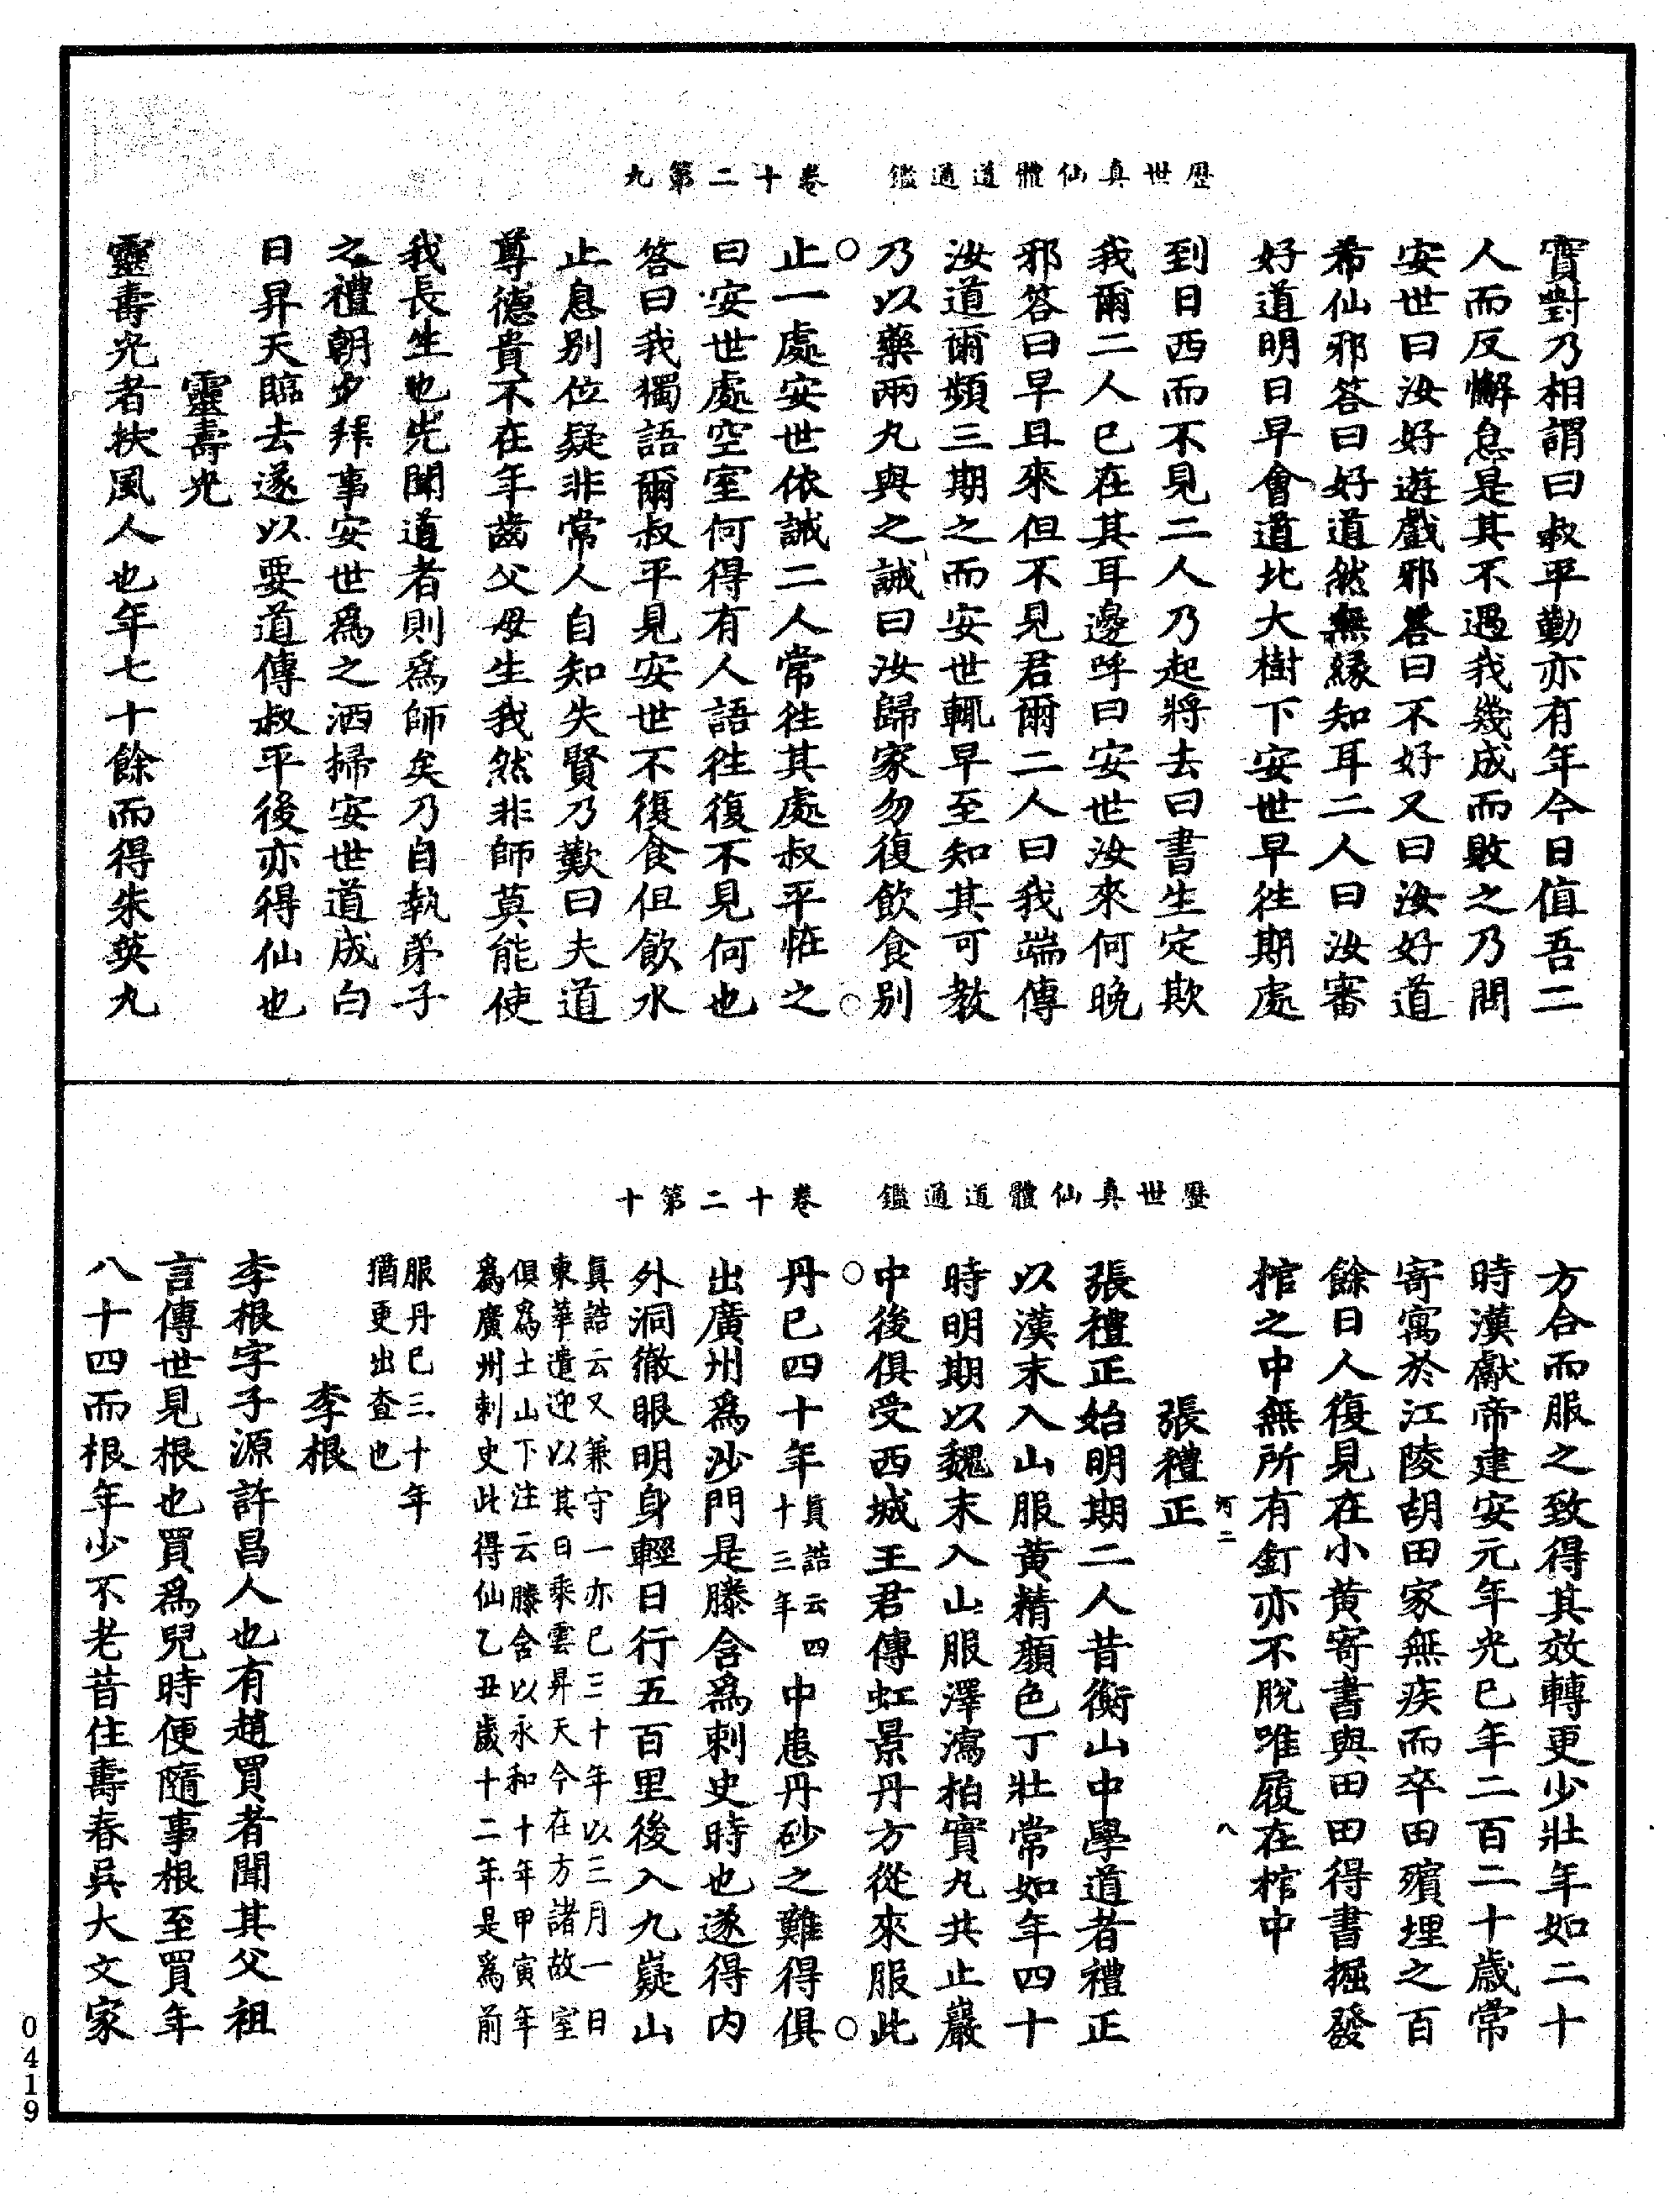 歷世真仙體道通鑑　卷十二第九
實對乃相謂曰叔平勤亦有年今日值吾二
人而反懈怠是其不遇我幾成而敗之乃問
安世曰汝好遊戲邪答曰不好又曰汝好道
希仙邪答曰好道然無緣知耳二人曰汝審
好道明日早會道北大樹下安世早往期處
到日西而不見二人乃起將去曰書生定欺
我爾二人已在其耳邊呼曰安世汝來何晚
邪答曰早旦來但不見君爾二人曰我端傳
汝道爾頻三期之而安世輒早至知其可教
乃以藥兩丸與之誡曰汝歸家勿復飲食別
止一處安世依誡二人常往其處叔平恠之
曰安世處空室何得有人語往復不見何也
答曰我獨語爾叔平見安世不復食但飲水
止息別位疑非常人自知失賢乃歎曰夫道
尊德貴不在年齒父母生我然非師莫能使
我長生也先聞道者則爲師矣乃自執弟子
之禮朝夕拜事安世爲之洒掃安世道成白
日昇天臨去遂以要道傳叔平後亦得仙也
靈壽光
靈壽光者扶風人也年七十餘而得朱英丸
歷世真仙體道通鑑　卷十二第十
方合而服之致得其效轉更少壯年如二十
時漢獻帝建安元年光已年二百二十歲常
寄寓於江陵胡田家無疾而卒田殯埋之百
餘日人復見在小黃寄書與田田得書掘發
棺之中無所有釘亦不脫唯履在棺中
河二　八
張禮正
張禮正始明期二人昔衡山中學道者禮正
以漢末入山服黃精顏色丁壯常如年四十
時明期以魏末入山服澤瀉柏實丸共止巖
中後俱受西城王君傳虹景丹方從來服此
丹已四十年真誥云四十三年中患丹砂之難得俱
出廣州爲沙門是滕含爲刺史時也遂得內
外洞徹眼明身輕日行五百里後入九嶷山
真誥云又兼守一亦已三十年以三月一日
東華遣迎以其日乘雲昇天今在方諸故室
俱爲土山下注云滕含以永和十年甲寅年
爲廣州刺史此得仙乙丑歲十二年是爲前
服丹已三十年
猶更出查也
李根
李根字子源許昌人也有趙買者聞其父祖
言傳世見根也買爲兒時便隨事根至買年
八十四而根年少不老昔住壽春吳大文家
0419